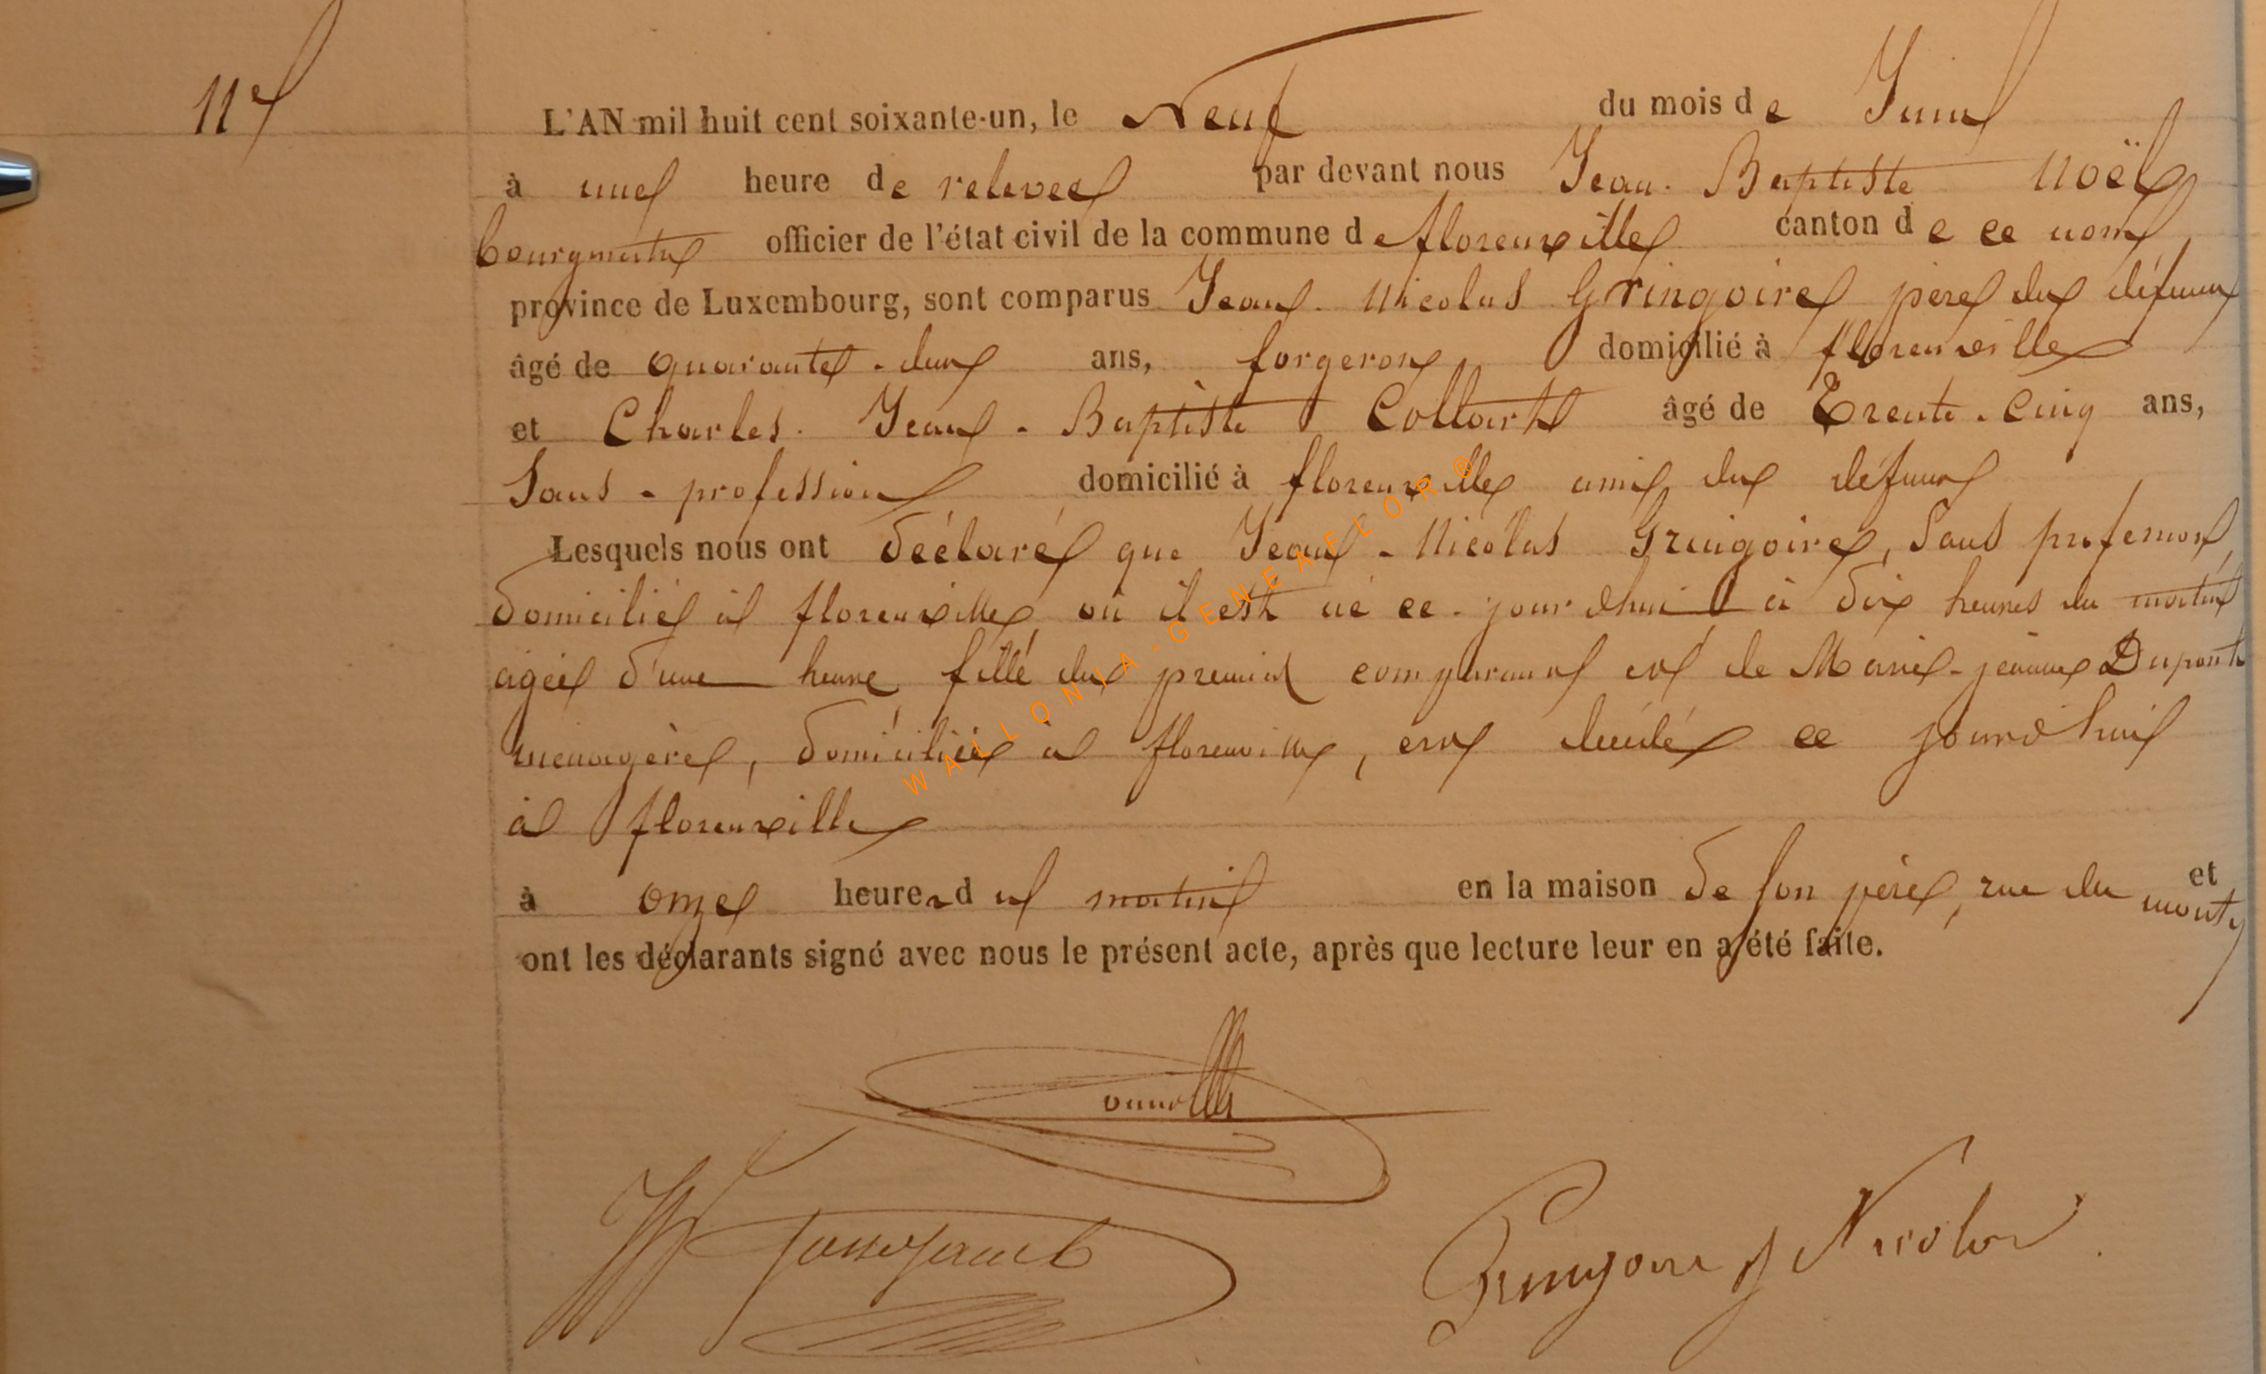 11e
L'AN mil huit cent soixante-un, le Neuf du mois de Juin
à une heure de relevée par devant nous Jean-Baptiste Noël
bourgmestre officier de l'état civil de la commune de florenville canton de ce nom,
province de Luxembourg, sont comparus Jean-Nicolas Gringoire père du défunt
âgé de quarante-deux ans, forgeron, domicilié à florenville
et Charles-Jean-Baptiste Collart âgé de Trente-cinq ans,
Sans-profession domicilié à florenville ami du défunt
Lesquels nous ont déclaré que Jean-Nicolas Gringoire, Sans profession,
domicilié à florenville où il est né ce-jourdhui à dix heures du matin
agée d'une heure, fille du premier comparant et de Marie-jeanne Dupont
menagère, domiciliée à florenville, est décédé ce jourdhui
à florenville
à onze heures du matin en la maison de son père, rue du monty et
ont les déclarants signé avec nous le présent acte, après que lecture leur en a été faite.
Gringoire J Nicolas
WALLONIA-GENEAFLOR®